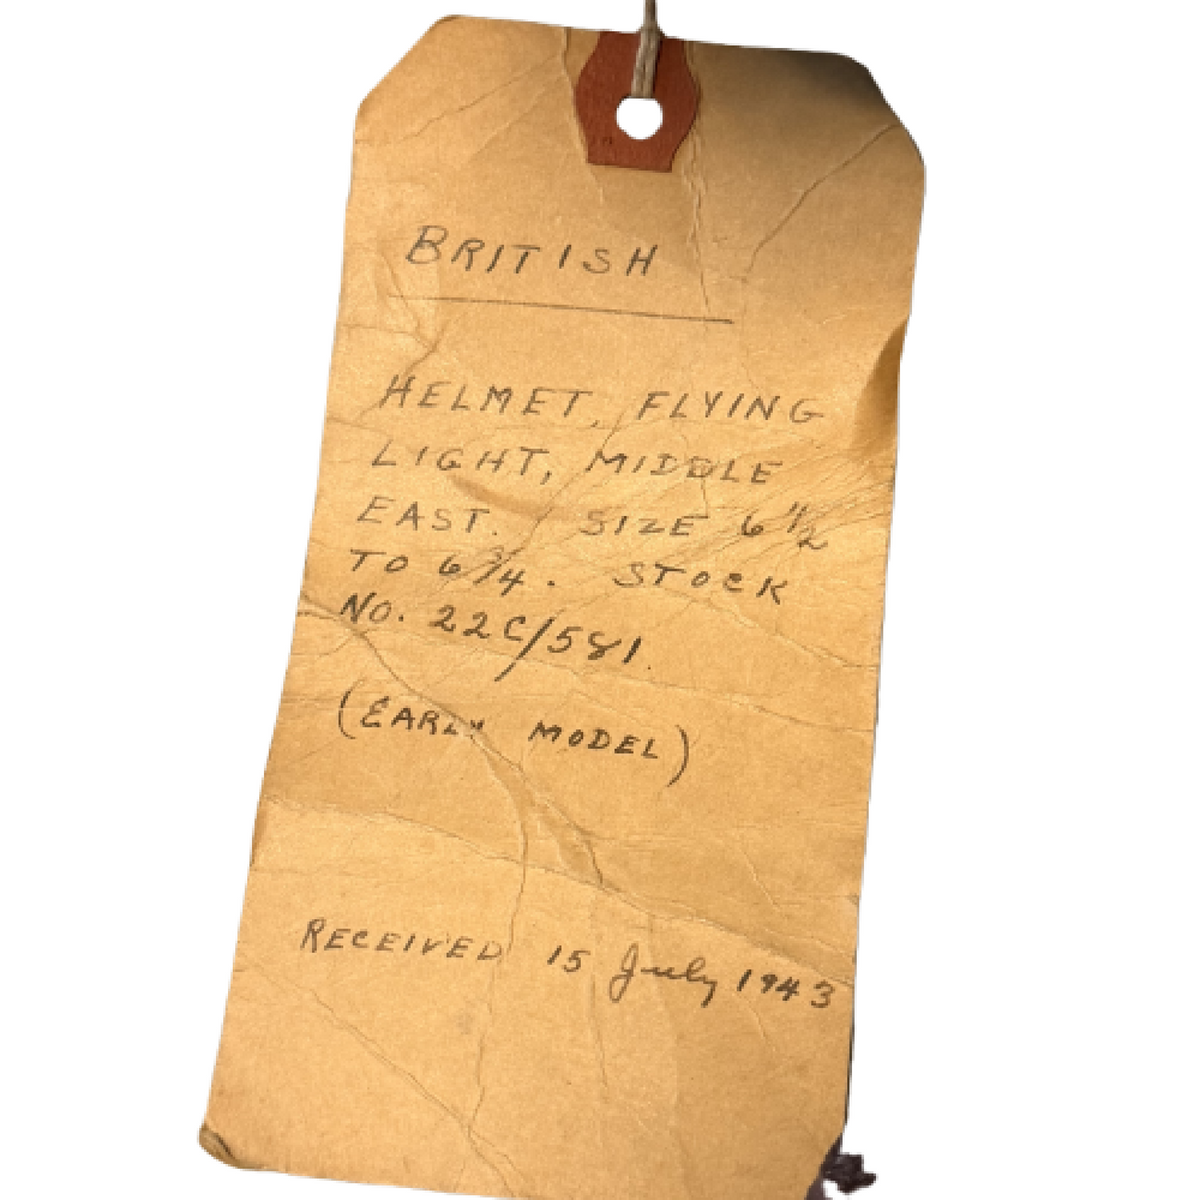 BRITISH
HELMET, FLYING
LIGHT, MIDDLE
EAST. SIZE 6 1/2
TO 6 3/4. STOCK
NO. 22C/581.
(EARLY MODEL)
RECEIVED 15 July 1943